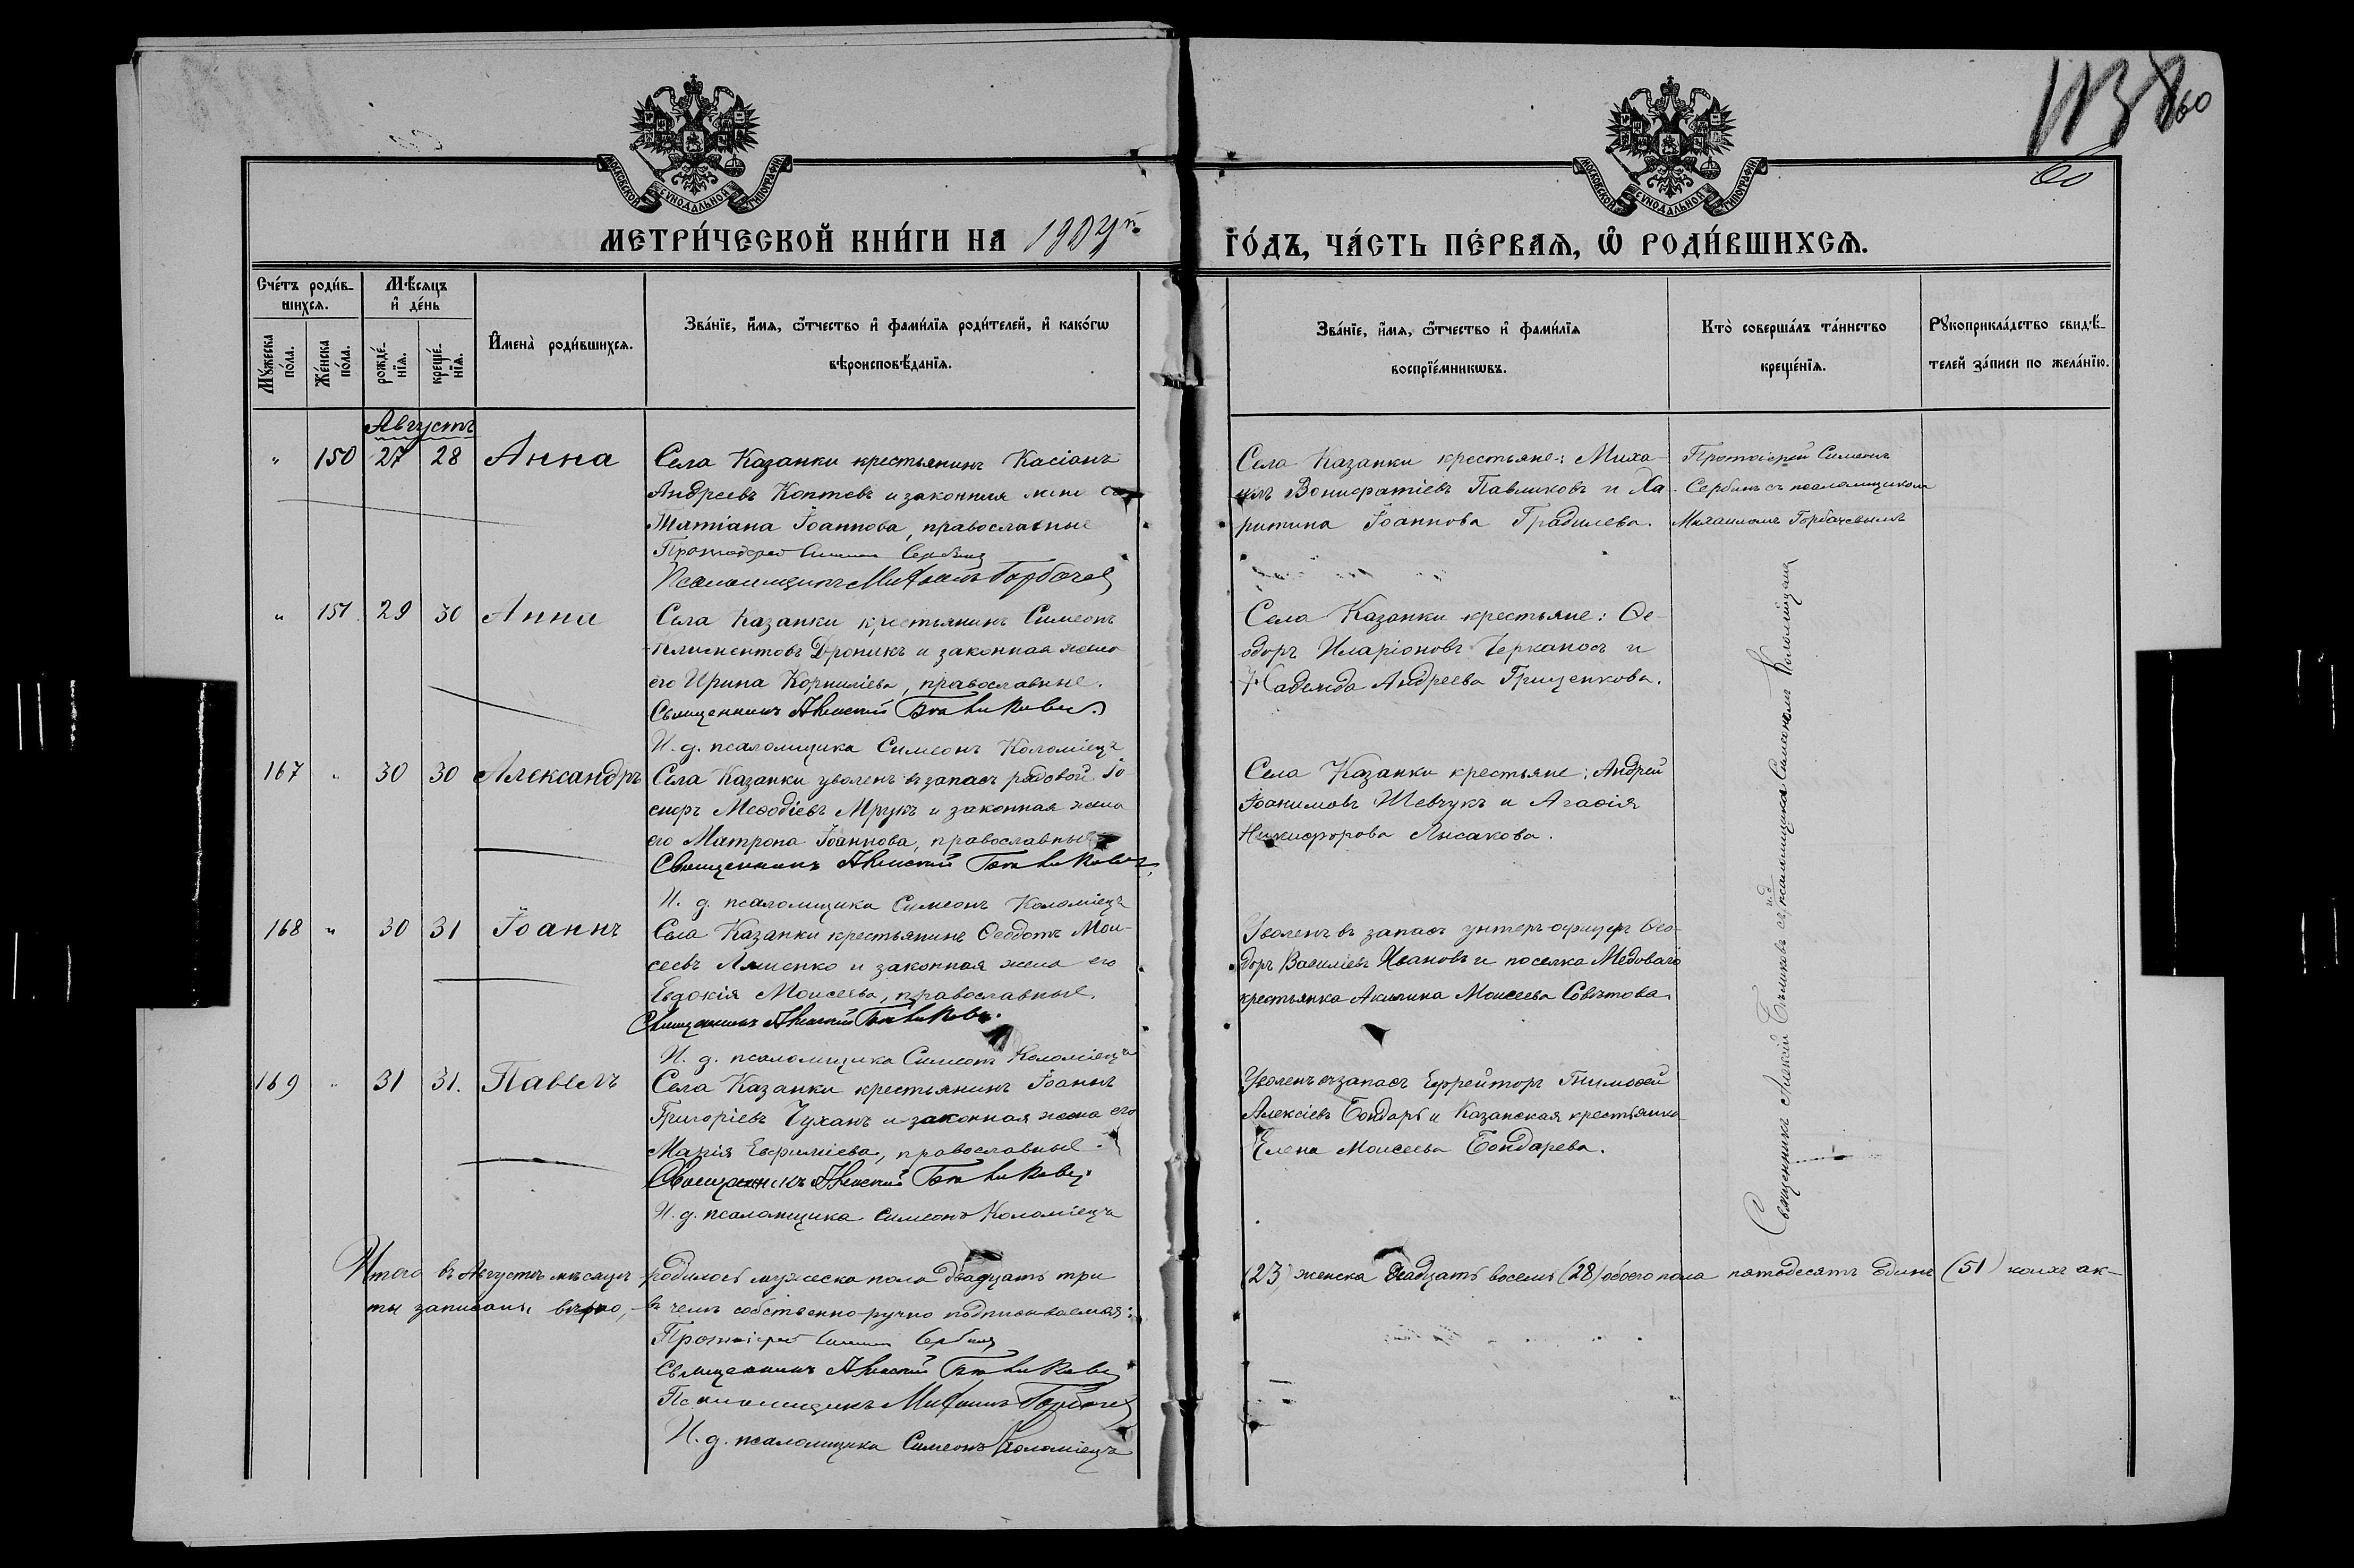 1138
60
60
МОСКОВСКОЙ СУНОДАЛЬНОЙ ТИПОГРАФІИ
МОСКОВСКОЙ СУНОДАЛЬНОЙ ТИПОГРАФІИ
МЕТРИ́ЧЕСКОЙ КНИ́ГИ НА 1904й
ГО́ДЪ, ЧА́СТЬ ПЕ́РВАЯ, Ѿ РОДИ́ВШИХСѦ.
Сче́тъ роди́в-
шихсѧ.
Мѣ́сяцъ
и҆ де́нь
Му́жеска
по́ла.
Же́нска
по́ла.
рожде́-
нїѧ.
креще́-
нїѧ.
И҆мена̀ роди́вшихсѧ.
Зва́нїе, и҆́мѧ, ѻ҆́тчество и҆ фами́лїѧ роди́телей, и҆ како́гѡ
вѣроисповѣ́данїѧ.
Зва́нїе, и҆́мѧ, ѻ҆́тчество и҆ фами́лїѧ
воспрїе́мникѡвъ.
Кто̀ соверша́лъ та́инство
креще́нїѧ.
Рꙋкоприкла́дство свидѣ́-
телей за́писи по жела́нїю.
Августъ
" 150 27 28 Анна
Села Казанки крестьянинъ Касіанъ
Андреевъ Коптевъ и законная жена его
Татіана Іоаннова, православные
Протоіерей Симеонъ Сербинъ
Псаломщикъ Михаилъ Горбачев
Села Казанки крестьяне: Миха-
илъ Вонифатіевъ Павликовъ и Ха-
ритина Іоаннова Градилева.
Протоіерей Симеонъ
Сербинъ съ псаломщикомъ
Михаиломъ Горбачевымъ
" 151 29 30 Анна
Села Казанки крестьянинъ Симеонъ
Климентовъ Дроникъ и законная жена
его Ирина Корниліева, православные.
Священникъ Алексій
И. д. псаломщика Симеонъ Коломіецъ
Села Казанки крестьяне: Ѳе-
одоръ Иларіоновъ Черканосъ и
Надежда Андреева Грищенкова.
167 " 30 30 Александръ
Села Казанки уволенъ въ запасъ рядовой Іо
сифъ Меѳодіевъ Мрукъ и законная жена
его Матрона Іоаннова, православные
Священникъ Алексій
И. д. псаломщика Симеонъ Коломіецъ
Села Казанки крестьяне: Андрей
Іоакимовъ Шевчукъ и Агаѳія
Никифорова Лысакова.
168 " 30 31 Іоаннъ
Села Казанки крестьянинъ Ѳеодотъ Мои-
сеевъ Ляшенко и законная жена его
Евдокія Моисеева, православные.
Священникъ Алексій
И. д. псаломщика Симеонъ Коломіецъ
Уволенъ въ запасъ унтеръ-офицеръ Ѳео-
доръ Василіевъ Ивановъ и поселка Медоваго
крестьянка Акилина Моисеева Совѣтова.
169 " 31 31. Павелъ
Села Казанки крестьянинъ Іоаннъ
Григоріевъ Чуханъ и законная жена его
Марія Евфиміева, православные.
Священникъ Алексій
И. д. псаломщика Симеонъ Коломіецъ
Уволенъ въ запасъ Ефрейторъ Тимоѳей
Алексіевъ Бондарь и Казанская крестьянка
Елена Моисеева Бондарева.
Священникъ Алексій съ и.д. псаломщика Симеономъ Коломійцемъ
Итого въ Августѣ мѣсяцѣ родилось мужеска пола двадцать три (23,) женска двадцать восемь (28) обоего пола пятьдесятъ одинъ (51) коихъ ак-
ты записаны вѣрно, - въ чемъ собственно-ручно подписываемся:
Протоіерей Симеонъ Сербинъ
Священникъ Алексій
Псаломщикъ Михаилъ Горбачев
И. д. псаломщика Симеонъ Коломіецъ